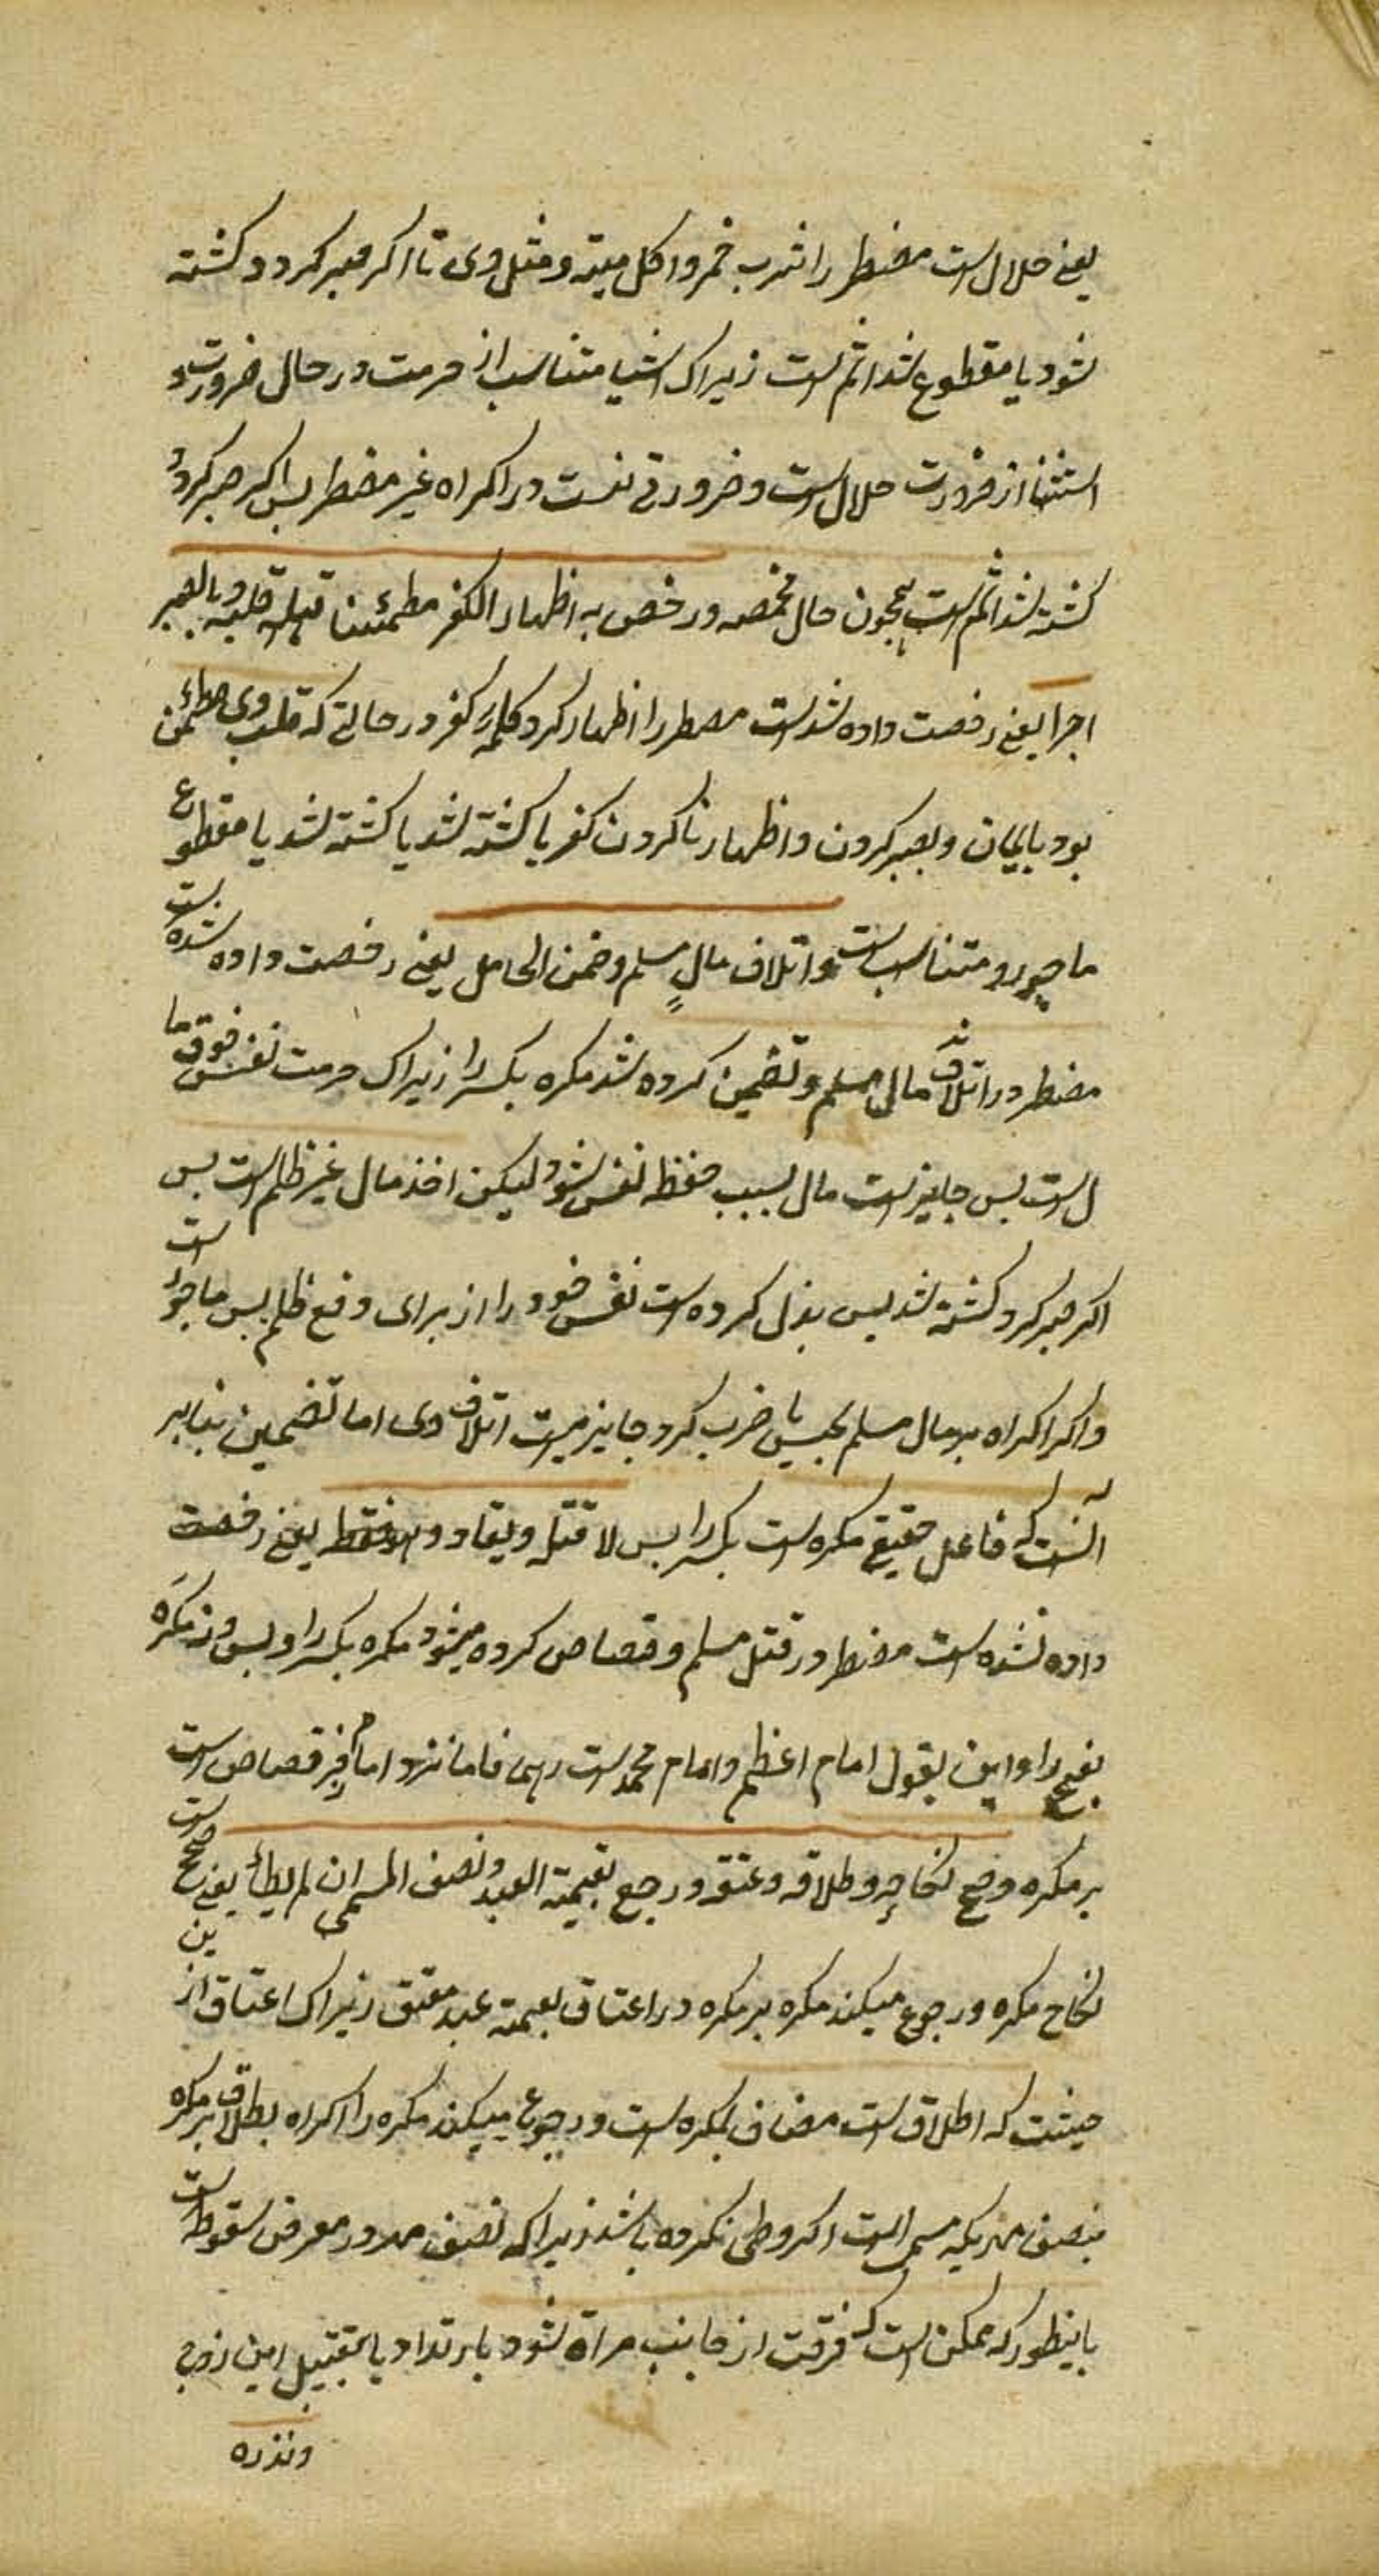 یعنی حلال است مضطر را شرب خمر و اکل میته و مثل وی تا اکر صبر کرد و کشته
شود یا مقطوع شد اثم است زیراک اشیا متناسب از حرمت در حال ضرورت و
استثنا از ضرورت حلال است و ضرورتی نست در اکراه غیر مضطر بس اکر صبر کرد و
کشته شد اثم است همجون حال مخمصه و رخص به اظهار الکفر مطمئنا قلبه و بالصبر
اجرا یعنی رخصت داده شد است مضطر را اظهار کرد کلمه کفر در حالتی که قلب وی مطمئن
بود بایمان و بصبر کردن و اظهار ناکردن کفر یا کشته شد یا کشته شد یا مقطوع
ماجور و متناسب است و اتلاف مال مسلم و ضمن الحامل یعنی رخصت داده شده است
مضطر در اتلاف مال مسلم و تضمین کرده شد مکره بکسر را زیراک حرمت نفس فوق ما
ل است بس جایز است مال بسبب حفظ نفس شود لیکن اخذ مال غیر ظلم است بس
اکر صبر کرد کشته شد بس بذل کرده است نفس خود را از برای دفع ظلم بس ماجور است
و اکر اکراه بر مال مسلم بحبس یا ضرب کرد جایز نیست اتلاف وی اما تضمین بنابر
آنست که فاعل حقیقی مکره است بکسر را بس لا قتله و یقاد هو فقط یعنی رخصت
داده نشده است مضطر در قتل مسلم و قصاص کرده میشود مکره بکسر را و بس و نز مکره
بفتح را و این بقول امام اعظم و امام محمد است رهما فاما نزد امام زفر قصاص است
بر مکره و صح نکاحه و طلاقه و عتقه و رجع بقیمة العبد و نصف المسمی ان لم یطأ یعنی صحیح است
نکاح مکره و رجوع میکند مکره بر مکره در اعتاق بقیمة عبد معتق زیراک اعتاق از ین
حیثیت که اطلاق است مضاف بمکره است و رجوع میکند مکره را اکراه بطلاق بر مکره
بنصف مهریکه مسمی است اکر وطی نکرده باشد زیراکه نصف مهر در معرض سقوط است
باینطور که ممکن است که فرقت از جانب مراة شود بارتداد یا بتقبیل ابن زوج
ونذره